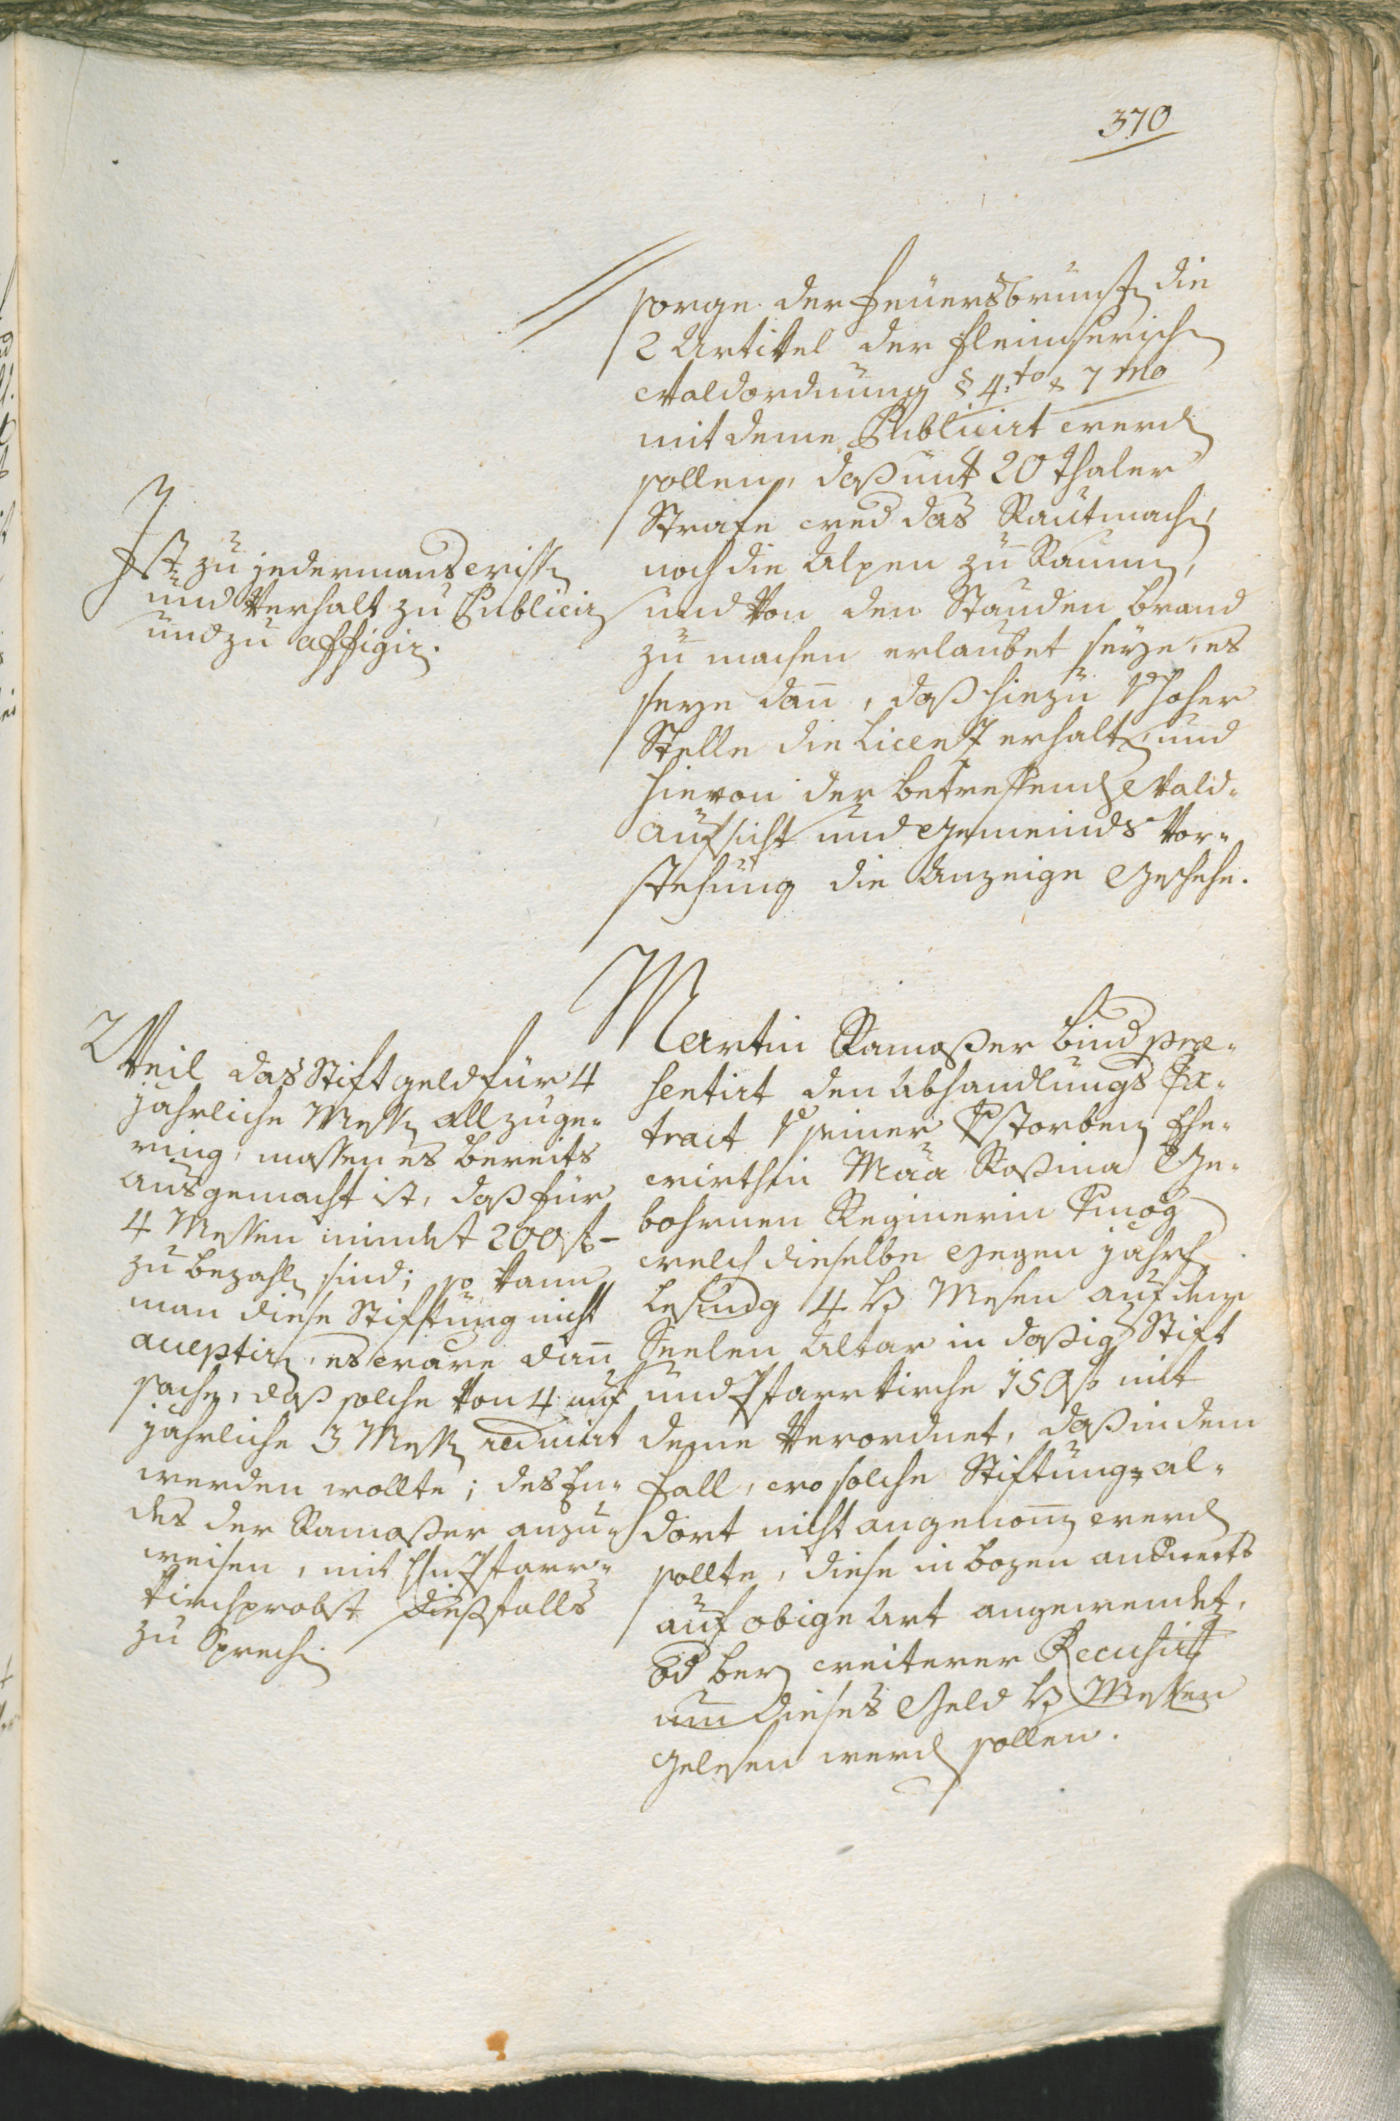 370
sorge der Feüersbrunst, die
2 Articel der Fleimserischen
Waldordnung § 4.to & 7mo
mit deme Publicirt werden
sollen, daß unt 20 Thaler
Strafe wed das Rautmachen,
noch die Alpen zu Raumen,
und von den Stauden brand
zu machen erlaubet seye, es
seye dan̄, daß hiezu von hoher
Stelle die Licenz erhalten, und
hievon der betreffenden Wald-
aufsicht und Gemeinds Vor-
stehung die Anzeige geschehe.
Ist zu jedermans wissen
und Verhalt zu Publicirn
und zu affigirn.
Martin Ramoßer bind prae-
sentirt den Abhandlungs Ex-
tract von seiner verstorbenen Ehe-
wirthin Maria Roßina Ge-
bohrnen
welch dieselbe gegen jährl.
Lesung 4 hl. Mesen auf dem
Seelen Altar in daßig Stift
und Pfarrkirche 150 f mit
deme Verordnet, daß in dem
Fall, wo solche Stiftung al-
dort nicht angenom̄en werden
sollte, diese in bozen anderwerts
auf obige Art angewendet,
od bey weiterer Recusirung
um dieses Geld hl. Messen
gelesen werden sollen.
2
Weil das Stiftgeld für 4
jährliche Messen allzuge-
ring, massen es bereits
ausgemacht ist, daß für
4 Messen mindest 200 f
zu bezahlen sind; so kann
man diese Stiftung nicht
acceptirn, es wäre dan̄
sachen, daß solche von 4 auf
jährliche 3 Messen reducirt
werden wollte; des En-
des der Ramoßer anzu-
weisen, mit Hn Pfarr-
kirchprobst dießfalls
zu Sprechen.